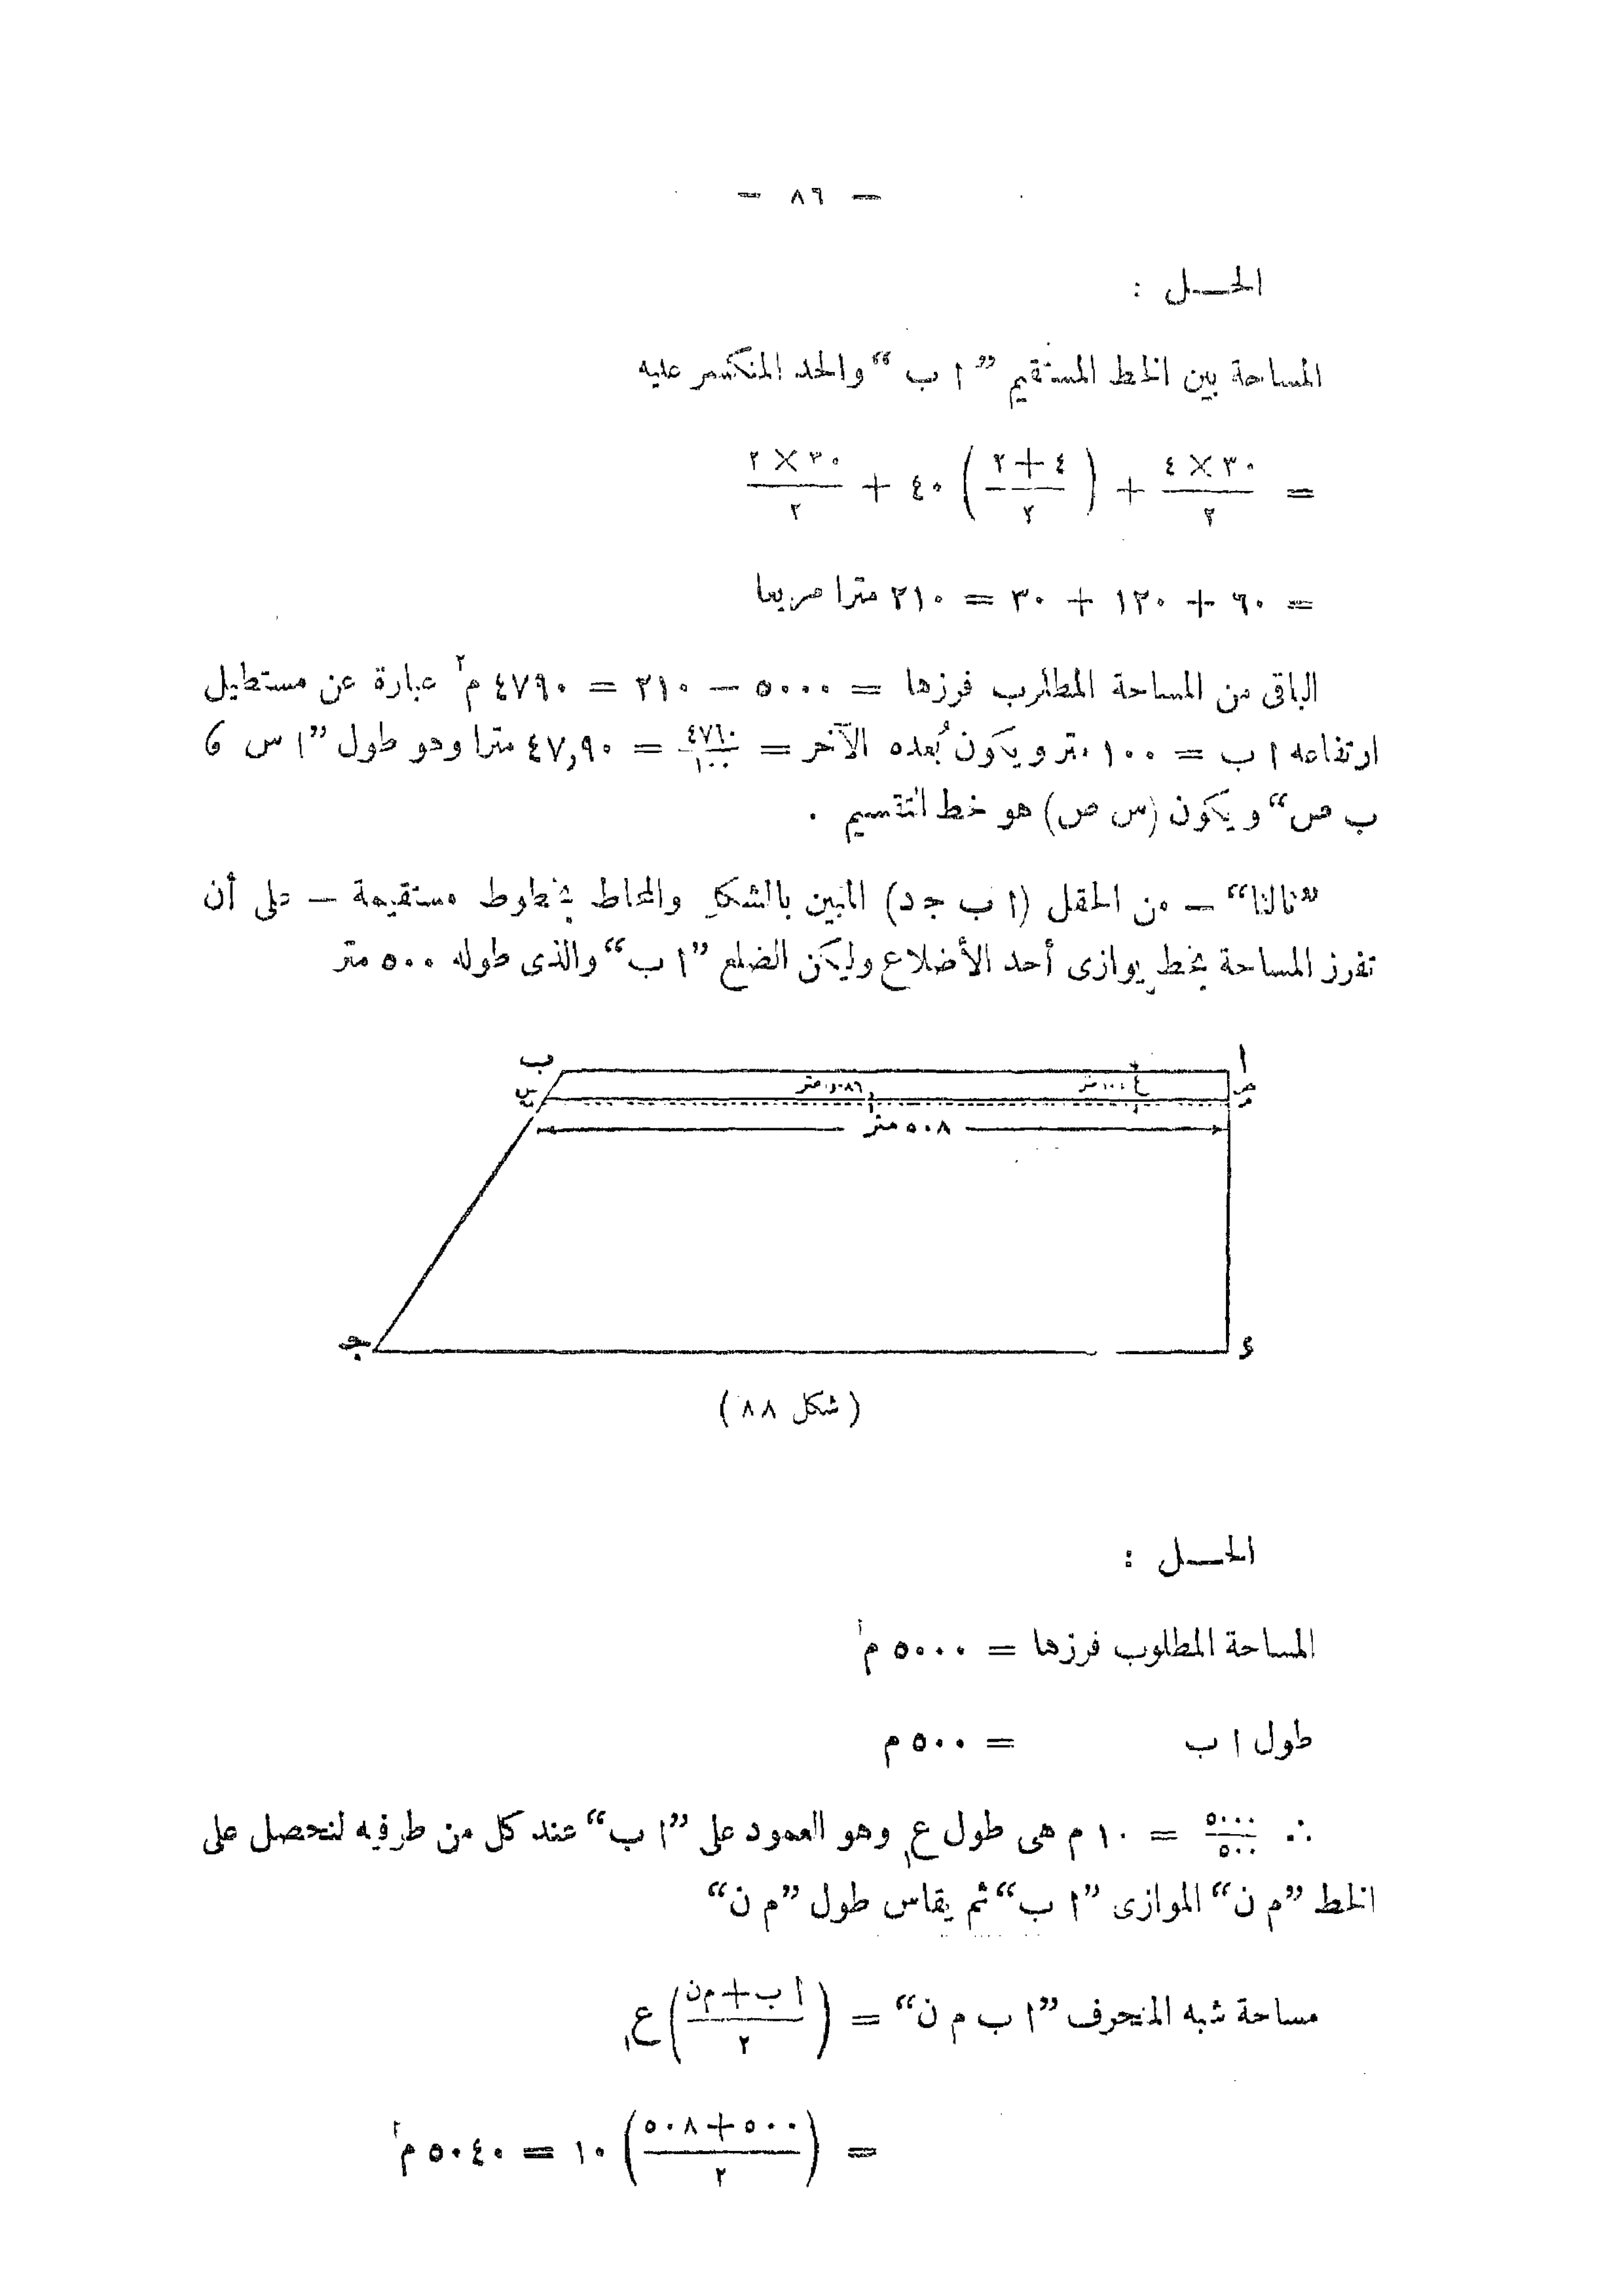 — ٨٦ —
الحـــل :
المساحة بين الخط المستقيم ”ا ب“ والحد المنكسر عليه
= ٣٠ × ٤ / ٢ + ( ٤ + ٢ / ٢ ) ٤٠ + ٣٠ × ٢ / ٢
= ٦٠ + ١٢٠ + ٣٠ = ٢١٠ مترا مربعا
الباقى من المساحة المطلوب فرزها = ٥٠٠٠ — ٢١٠ = ٤٧٩٠ م٢ عبارة عن مستطيل
ارتفاعه ا ب = ١٠٠ متر ويكون بُعده الآخر = ٤٧٦٠ / ١٠٠ = ٤٧,٩٠ مترا وهو طول ”ا س ،
ب ص“ ويكون (س ص) هو خط التقسيم .
”ثالثا“ — من الحقل (ا ب ج د) المبين بالشكل والمحاط بخطوط مستقيمة — على أن
تفرز المساحة بخط يوازى أحد الأضلاع وليكن الضلع ”ا ب“ والذى طوله ٥٠٠ متر
ب ا
س ص
ن م
ع
٥٠٨ متر
جـ د
( شكل ٨٨ )
الحـــل :
المساحة المطلوب فرزها = ٥٠٠٠ م٢
طول ا ب = ٥٠٠ م
∴ ٥٠٠٠ / ٥٠٠ = ١٠ م هى طول ع١ وهو العمود على ”ا ب“ عند كل من طرفيه لنحصل على
الخط ”م ن“ الموازى ”ا ب“ ثم يقاس طول ”م ن“
مساحة شبه المنحرف ”ا ب م ن“ = ( ا ب + م ن / ٢ ) ع١
= ( ٥٠٠ + ٥٠٨ / ٢ ) ١٠ = ٥٠٤٠ م٢